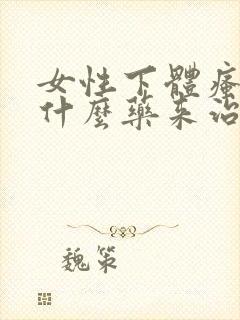 女性下體瘙
什麼藥来治
魏策